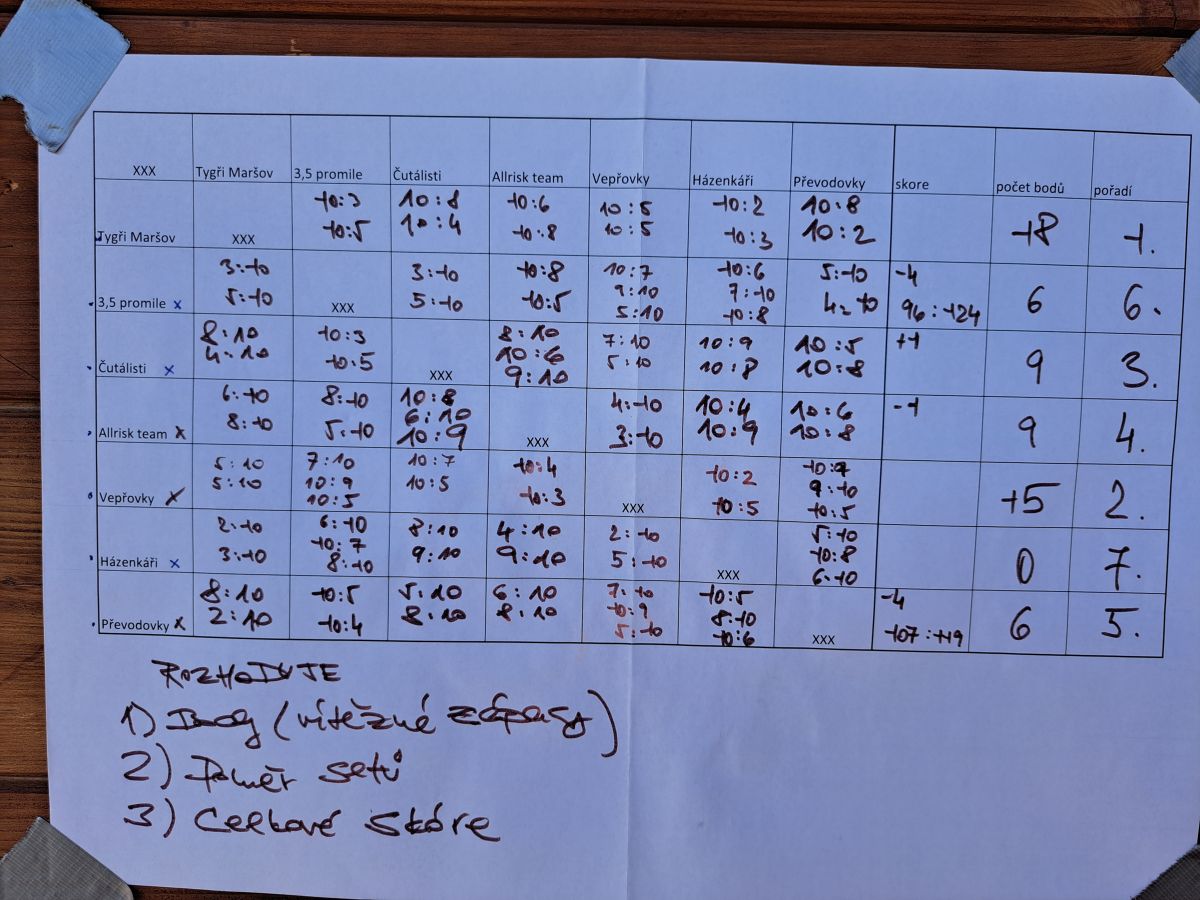 XXX Tygři Maršov 3,5 promile Čutálisti Allrisk team Vepřovky Házenkáři Převodovky skore počet bodů pořadí
10:3 10:8 10:6 10:5 10:2 10:8
10:5 10:4 10:8 10:5 10:3 10:2
Tygři Maršov XXX 18 1.
3:10 3:10 10:8 10:7 10:6 5:10 -4
5:10 5:10 10:5 9:10 7:10 4:10
3,5 promile x XXX 5:10 10:8 96:124 6 6.
8:10 10:3 8:10 7:10 10:9 10:5 +1
4:10 10:5 10:6 5:10 10:8 10:8
Čutálisti x XXX 9:10 9 3.
6:10 8:10 10:8 4:10 10:4 10:6 -1
8:10 5:10 6:10 3:10 10:9 10:8
Allrisk team x 10:9 XXX 9 4.
5:10 7:10 10:7 10:4 10:2
5:10 10:9 10:5 10:3 10:5 9:10
Vepřovky x 10:5 XXX 10:5 15 2.
2:10 6:10 8:10 4:10 2:10 5:10
3:10 10:7 9:10 9:10 5:10 10:8
Házenkáři x 8:10 XXX 6:10 0 7.
8:10 10:5 5:10 6:10 7:10 10:5 -4
2:10 10:4 8:10 8:10 10:9 8:10
Převodovky x 5:10 10:6 XXX 107:119 6 5.
ROZHODUJE
1) Body (vítězné zápasy)
2) Poměr setů
3) Celkové skóre